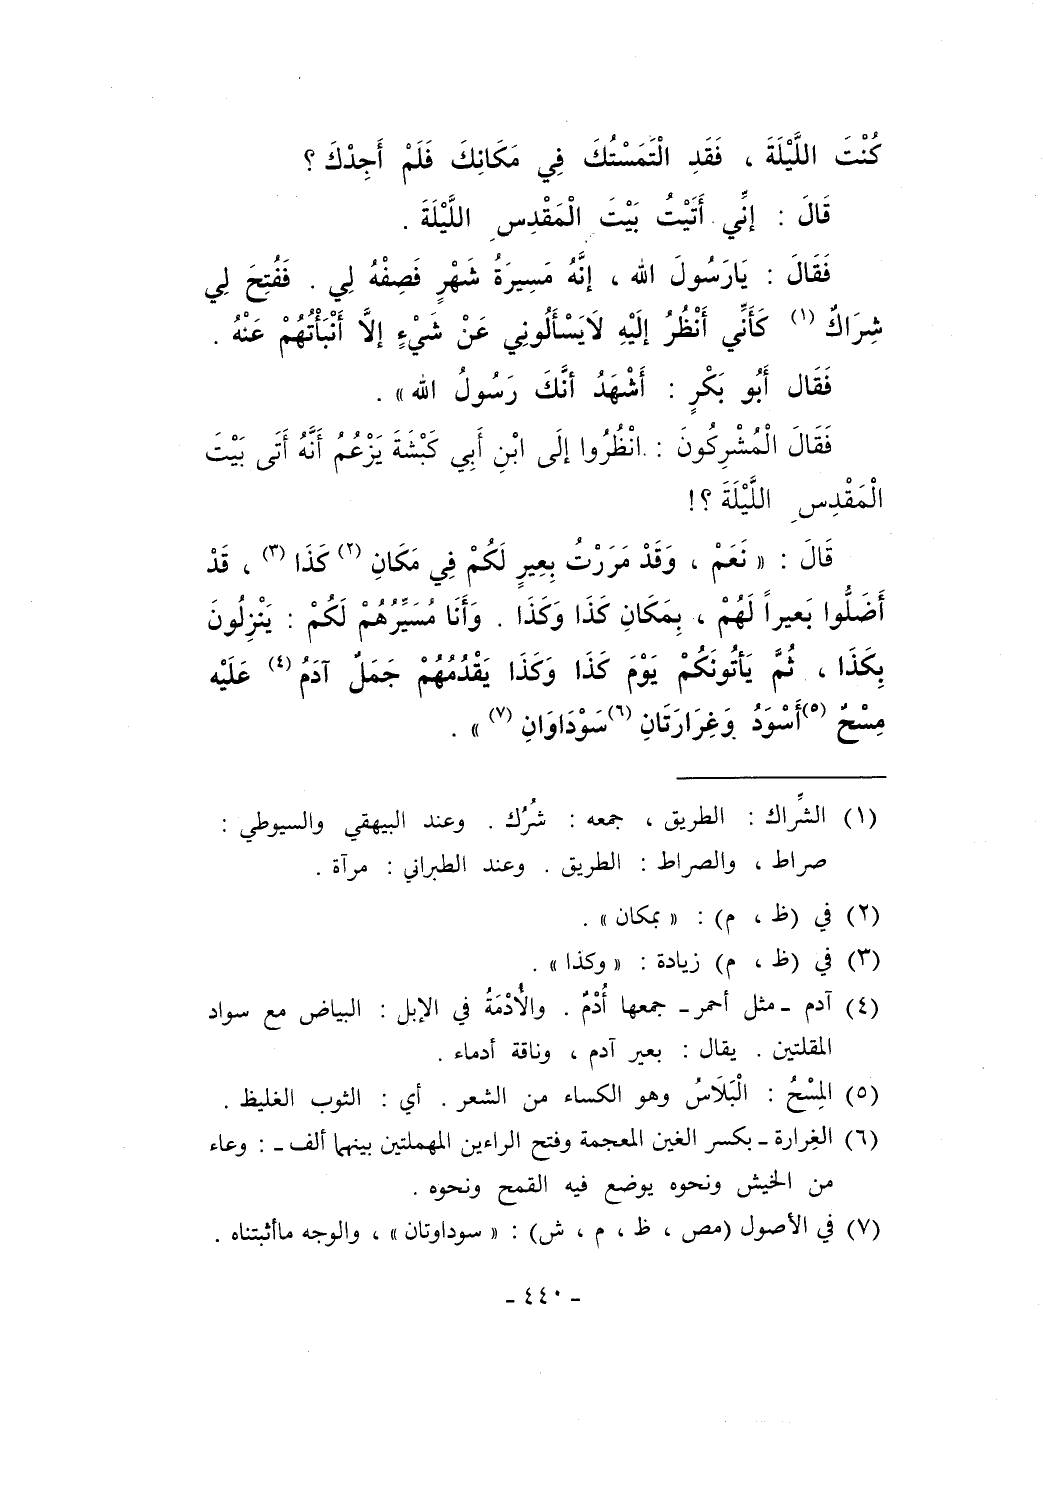 كُنْتَ اللَّيْلَةَ ، فَقَدِ الْتَمَسْتُكَ فِي مَكَانِكَ فَلَمْ أَجِدْكَ ؟
قَالَ : إِنِّي أَتَيْتُ بَيْتَ الْمَقْدِسِ اللَّيْلَةَ .
فَقَالَ : يَارَسُولَ الله ، إِنَّهُ مَسِيرَةُ شَهْرٍ فَصِفْهُ لِي . فَفُتِحَ لِي
شِرَاكٌ (١) كَأَنِّي أَنْظُرُ إِلَيْهِ لَايَسْأَلُونِي عَنْ شَيْءٍ إِلاَّ أَنْبَأْتُهُمْ عَنْهُ .
فَقَال أَبُو بَكْرٍ : أَشْهَدُ أنَّكَ رَسُولُ الله» .
فَقَالَ الْمُشْرِكُونَ : انْظُرُوا إِلَى ابْنِ أَبِي كَبْشَةَ يَزْعُمُ أَنَّهُ أَتَى بَيْتَ
الْمَقْدِسِ اللَّيْلَةَ ؟!
قَالَ : « نَعَمْ ، وَقَدْ مَرَرْتُ بِعِيرٍ لَكُمْ فِي مَكَانِ (٢) كَذَا (٣) ، قَدْ
أَضَلُّوا بَعيراً لَهُمْ ، بِمَكَانِ كَذَا وَكَذَا . وَأَنَا مُسَيِّرُهُمْ لَكُمْ : يَنْزِلُونَ
بِكَذَا ، ثُمَّ يَأْتُونَكُمْ يَوْمَ كَذَا وَكَذَا يَقْدُمُهُمْ جَمَلٌ آدَمُ (٤) عَلَيْه
مِسْحٌ (٥) أَسْوَدُ وَغِرَارَتَانِ (٦) سَوْدَاوَانِ (٧) » .
(١) الشِّراك : الطريق ، جمعه : شُرُك . وعند البيهقي والسيوطي :
صراط ، والصراط : الطريق . وعند الطبراني : مرآة .
(٢) في (ظ ، م) : « بمكان » .
(٣) في (ظ ، م) زيادة : « وكذا » .
(٤) آدم ـ مثل أحمر ـ جمعها أُدْمٌ . والأُدْمَةُ في الإبل : البياض مع سواد
المقلتين . يقال : بعير آدم ، وناقة أدماء .
(٥) المِسْحُ : الْبَلَاسُ وهو الكساء من الشعر . أي : الثوب الغليظ .
(٦) الغِرارة ـ بكسر الغين المعجمة وفتح الراءين المهملتين بينهما ألف ـ : وعاء
من الخيش ونحوه يوضع فيه القمح ونحوه .
(٧) في الأصول (مص ، ظ ، م ، ش) : « سوداوتان » ، والوجه ماأثبتناه .
ـ ٤٤٠ ـ